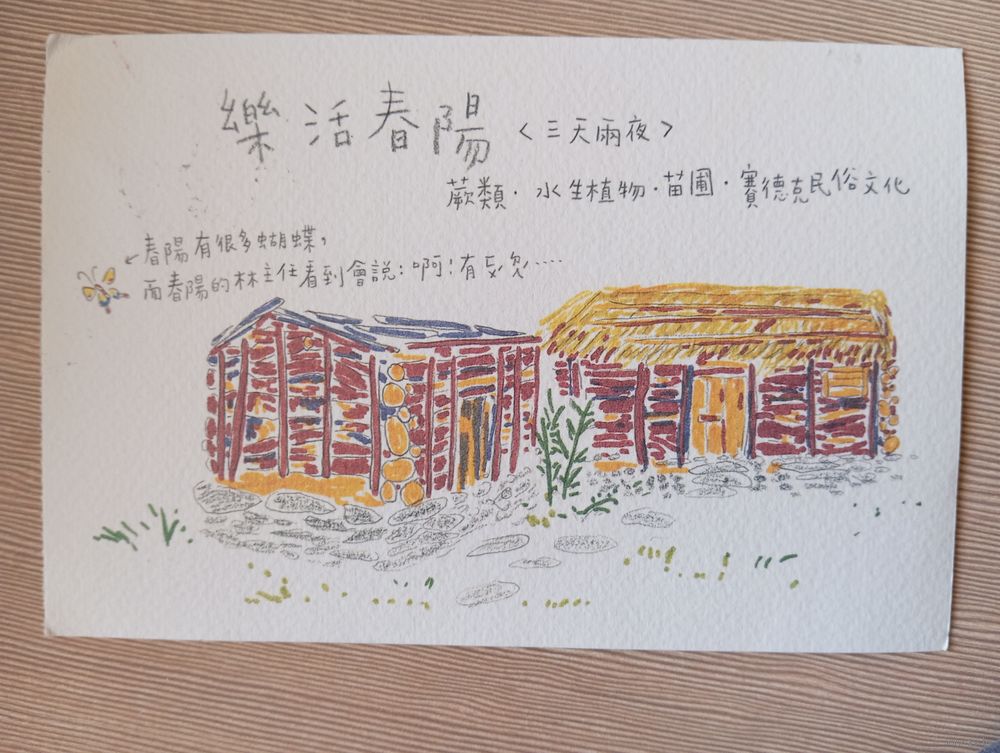 樂活春陽〈三天兩夜〉
蕨類·水生植物·苗圃·賽德克民俗文化
←春陽有很多蝴蝶，
而春陽的林主任看到會說：啊！有‥‥